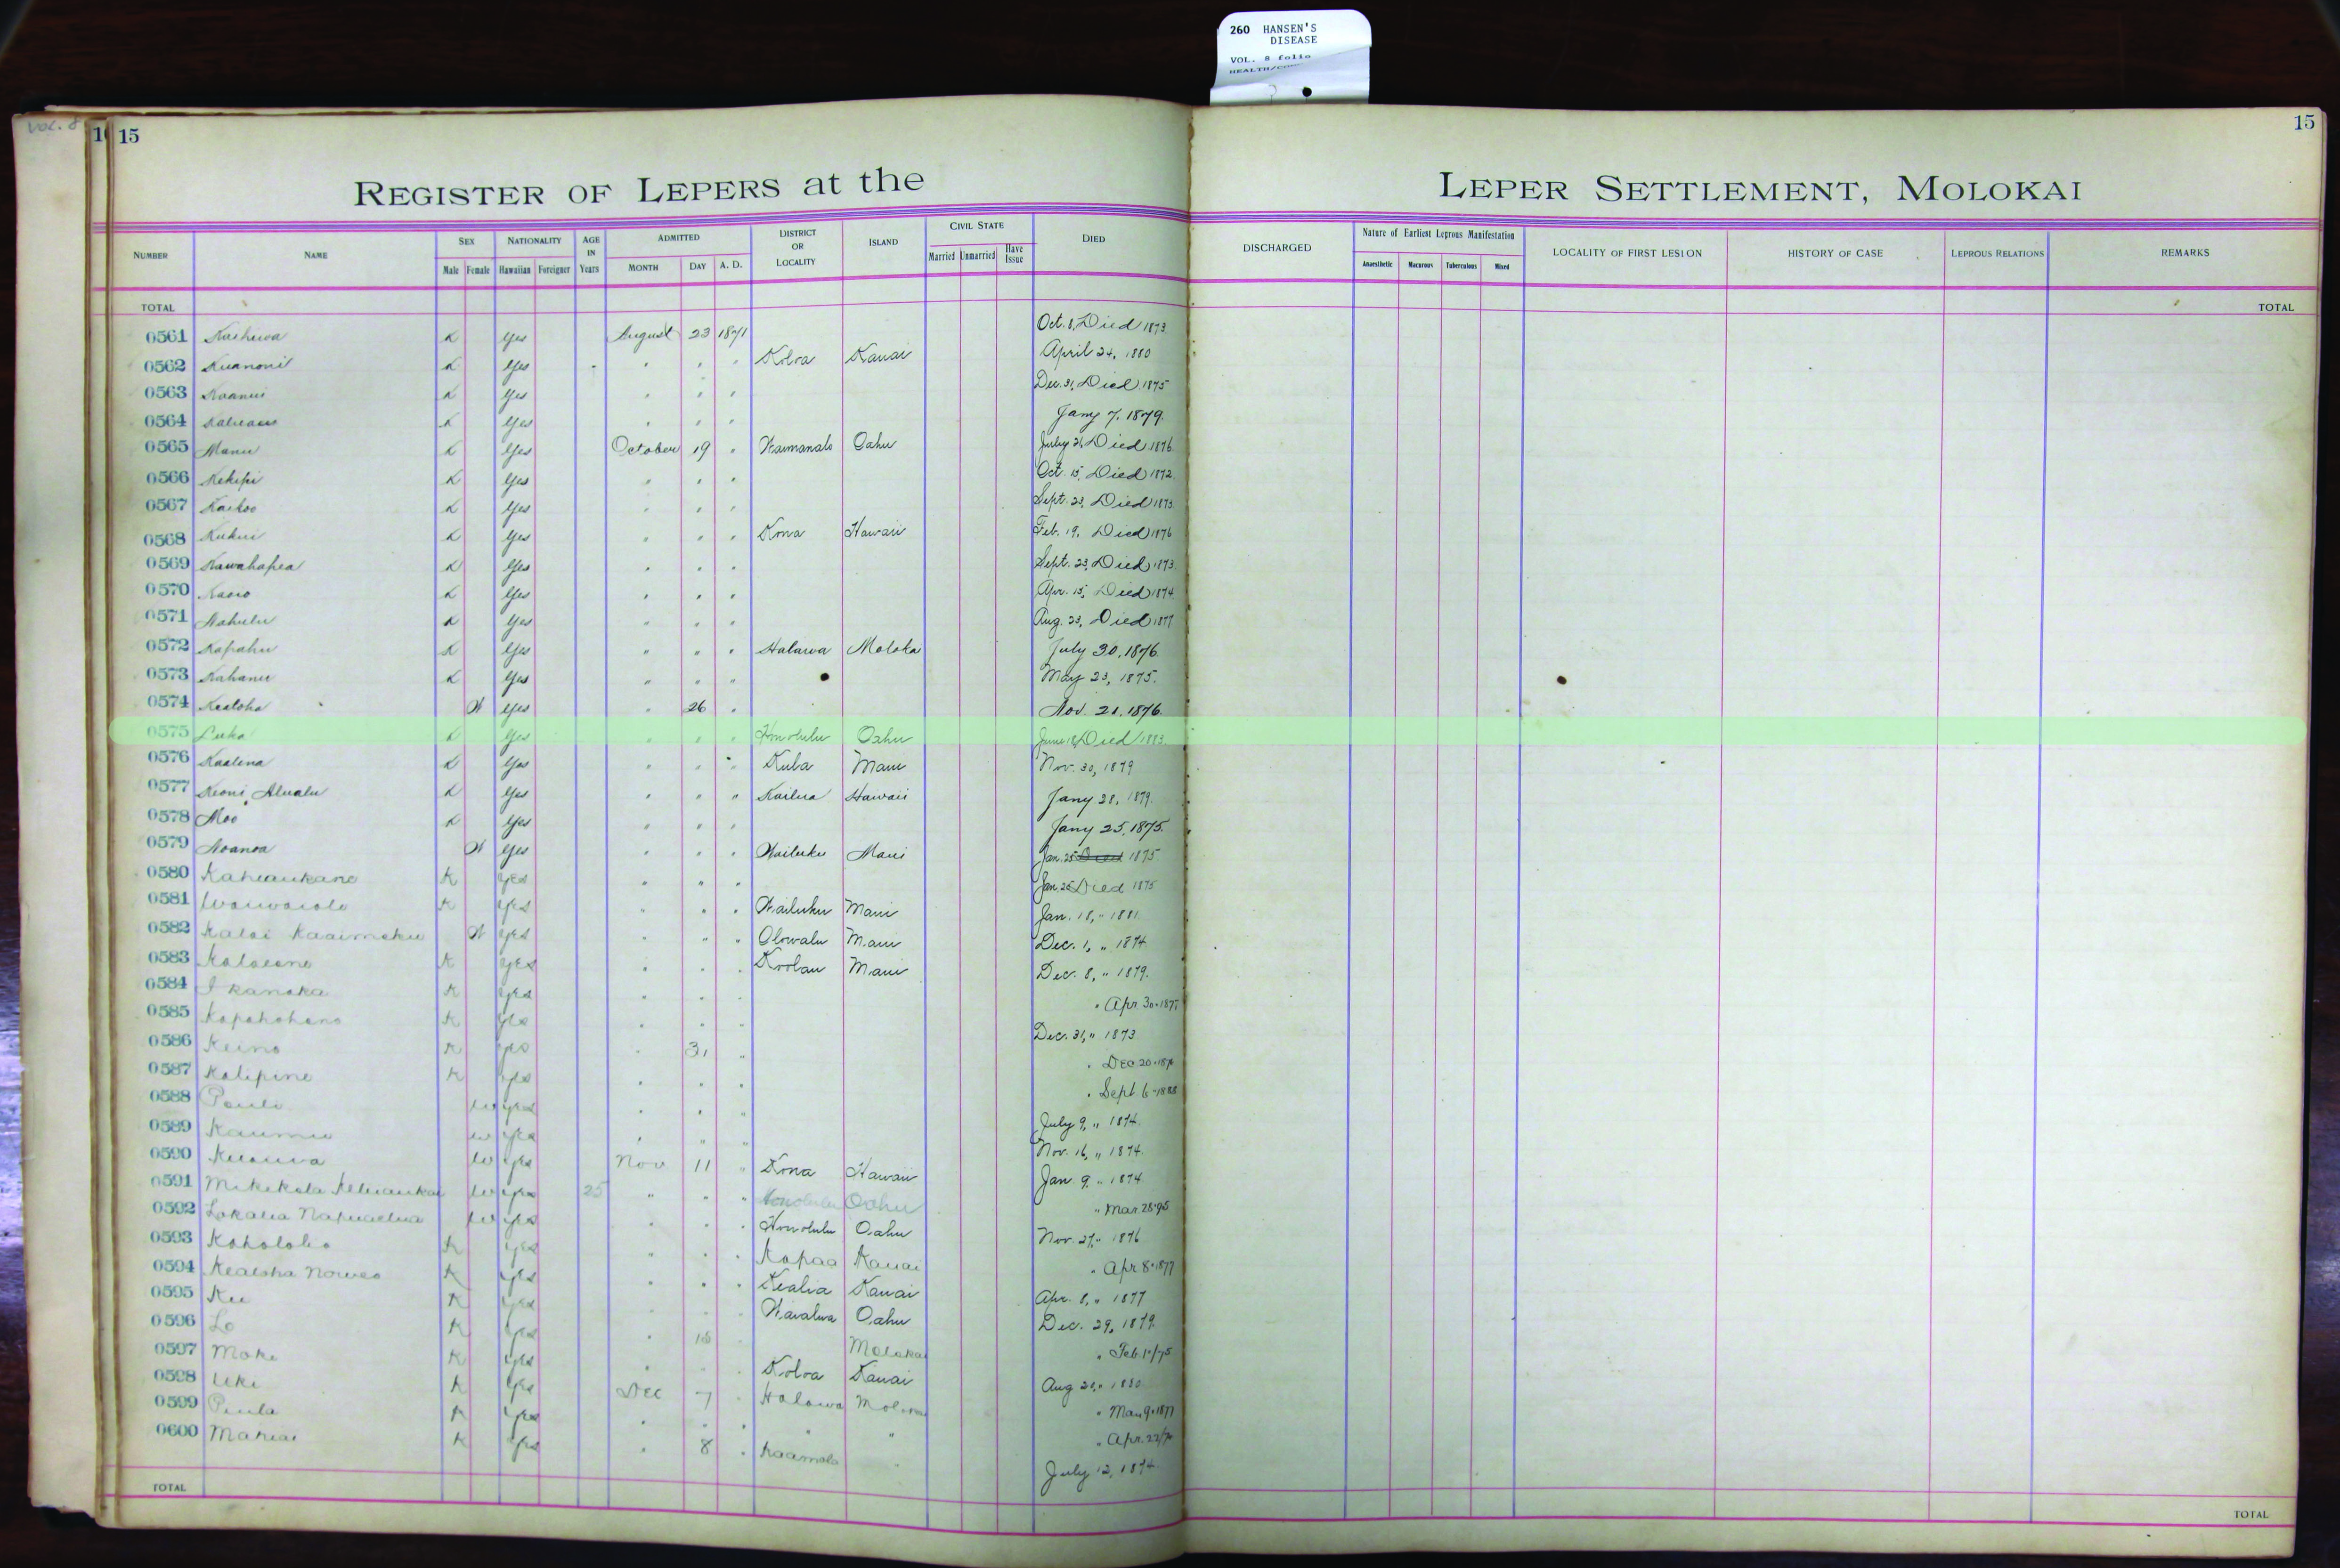 260 HANSEN'S
DISEASE
VOL. 8 folio
VOL. 8
15
15
REGISTER OF LEPERS at the LEPER SETTLEMENT, MOLOKAI
NUMBER NAME SEX Male Female NATIONALITY Hawaiian Foreigner AGE IN Years ADMITTED MONTH DAY A. D. DISTRICT OR LOCALITY ISLAND CIVIL STATE Married Unmarried Have Issue DIED DISCHARGED Nature of Earliest Leprous Manifestation Anaesthetic Macurous Tuberculous Mixed LOCALITY OF FIRST LESION HISTORY OF CASE LEPROUS RELATIONS REMARKS
TOTAL TOTAL
0561 K Yes August 23 1871 Oct. 8, Died 1873
0562 K Yes " " " Koloa Kauai April 24, 1880
0563 K Yes " " " Dec. 31, Died 1875
0564 K Yes " " " Jany 7, 1879.
0565 Manu K Yes October 19 " Waimanalo Oahu July 21, Died 1876
0566 Kekipi K Yes " " " Oct. 15, Died 1872
0567 Kaikoo K Yes " " " Sept. 23, Died 1873
0568 Kukui K Yes " " " Kona Hawaii Feb. 19, Died 1876
0569 Kawahapea K Yes " " " Sept. 23, Died 1873
0570 K Yes " " " Apr. 15, Died 1874
0571 Nahulu K Yes " " " Aug. 23, Died 1877
0572 Kapahu K Yes " " " Halawa Moloka July 30, 1876
0573 Kahanu K Yes " " " May 23, 1875.
0574 Kealoha W Yes " 26 " Nov. 21, 1876
0575 Luka K Yes " " " Honolulu Oahu June 18, Died 1883
0576 Kaalena K Yes " " " Kula Maui Nov. 30, 1879
0577 Keoni Alualu K Yes " " " Kailua Hawaii Jany 28, 1879.
0578 Moo K Yes " " " Jany 25, 1875.
0579 Noanoa W Yes " " " Wailuku Maui Jan. 25 Died 1875
0580 Kaheaukane K Yes " " " Jan. 25 Died 1875
0581 Waiwaiole K Yes " " " Wailuku Maui Jan. 18, " 1881
0582 Kalai Kaaimoku W Yes " " " Olowalu Maui Dec. 1, " 1874
0583 K Yes " " " Koolau Maui Dec. 8, " 1879.
0584 I kanaka K Yes " " " " Apr 30 - 187
0585 Kapahohano K Yes " " " Dec. 31, " 1873
0586 Keino K Yes " 31 " " Dec 20 - 187
0587 Kalipine K Yes " " " " Sept 6 - 1888
0588 Pauli W Yes " " " July 9, " 1874
0589 Kaumu W Yes " " " Nov. 16, " 1874.
0590 W Yes Nov 11 " Kona Hawaii Jan 9, " 1874
0591 W Yes 25 " " " Honolulu Oahu " Mar. 28-95
0592 Lokalia W Yes " " " Honolulu Oahu Nov. 27, " 1876
0593 Kaholoko K Yes " " " Kapaa Kauai " Apr 8 - 1877
0594 Kealoha K Yes " " " Kealia Kauai Apr. 8, " 1877
0595 Ku K Yes " " " Waialua Oahu Dec. 29, 1879
0596 Lo K Yes " 18 " Molokai " Feb. /75
0597 Moke K Yes " " " Koloa Kauai Aug 20, " 1880
0598 Uki K Yes Dec 7 " Halawa " Mar 9 - 1877
0599 Piula K Yes " " " " " " Apr. 22/
0600 K Yes " 8 " Kaamola " July 12, 1874
TOTAL TOTAL